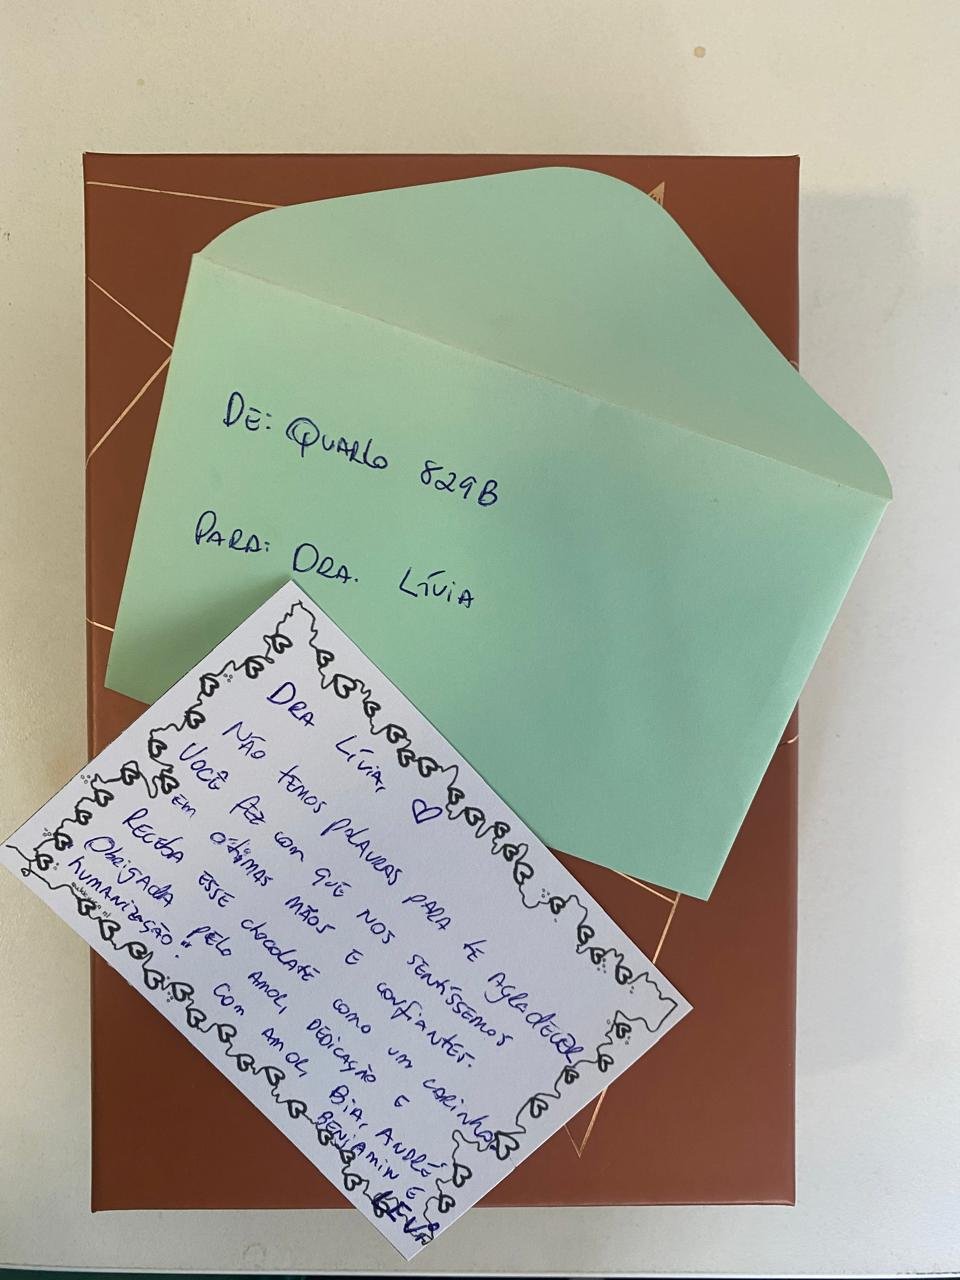 DE: QUARTO 829B
PARA: DRA. LÍVIA
DRA LÍVIA,
NÃO TEMOS PALAVRAS PARA TE AGRADECER
VOCÊ FEZ COM QUE NOS SENTÍSSEMOS
EM ÓTIMAS MÃOS E CONFIANTES.
RECEBA ESSE CHOCOLATE COMO UM CARINHO.
OBRIGADA PELO AMOR, DEDICAÇÃO E
HUMANIZAÇÃO!
COM AMOR, BIA, ANDRÉ
BENJAMIN E